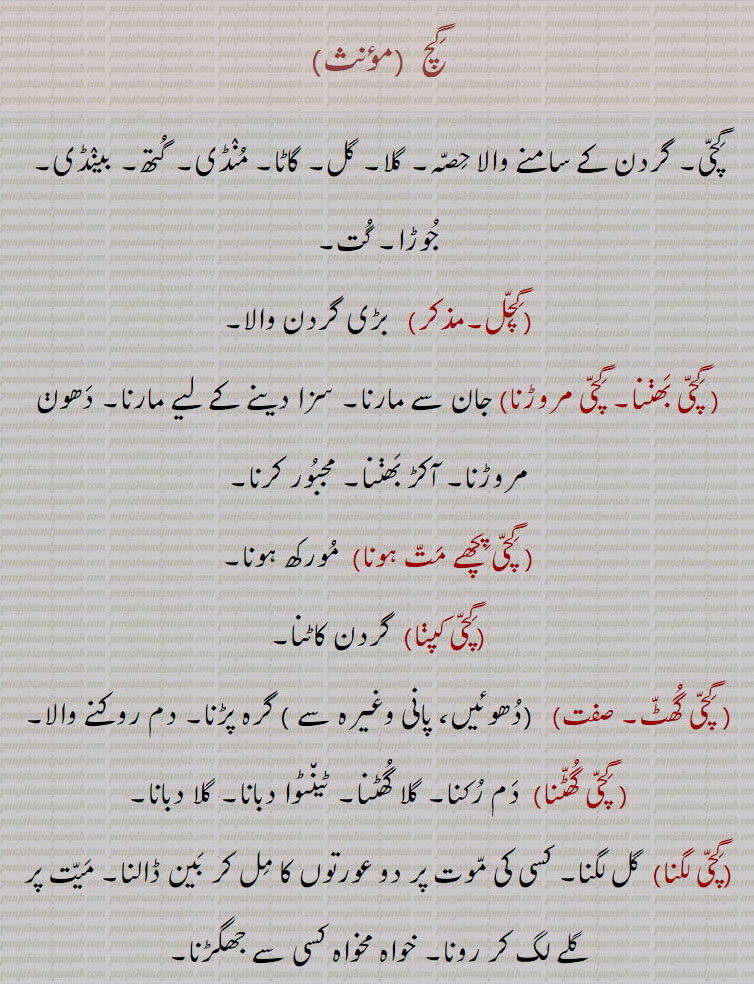 گِچّ (مؤنث)
گِچّی۔ گردن کے سامنے والا حِصّہ۔ گلا۔ گل۔ گاٹا۔ مُنْڈی۔ گُتھ۔ بینْڈی۔
جُوڑا۔ گُت۔
(گِچّل۔مذکر) بڑی گردن والا۔
(گِچّی بَھننا۔ گِچّی مروڑنا) جان سے مارنا۔ سزا دینے کے لیے مارنا۔ دَھون
مروڑنا۔ آکڑ بَھننا۔ مجبُور کرنا۔
(گِچّی پِچھے مَتّ ہونا) مُورکھ ہونا۔
(گِچّی کپنا) گردن کاٹنا۔
(گِچّی گُھٹّ۔ صفت) (دُھوئیں، پانی وغیرہ سے) گرہ پڑنا۔ دم روکنے والا۔
(گِچّی گُھٹّنا) دَم رُکنا۔ گلا گُھٹنا۔ ٹینْٹوا دبانا۔ گلا دبانا۔
(گِچّی لگنا) گل لگنا۔ کسی کی مَوت پر دو عورتوں کا مِل کر بَین ڈالنا۔ مَیّت پر
گلے لگ کر رونا۔ خواہ مخواہ کسی سے جھگڑنا۔